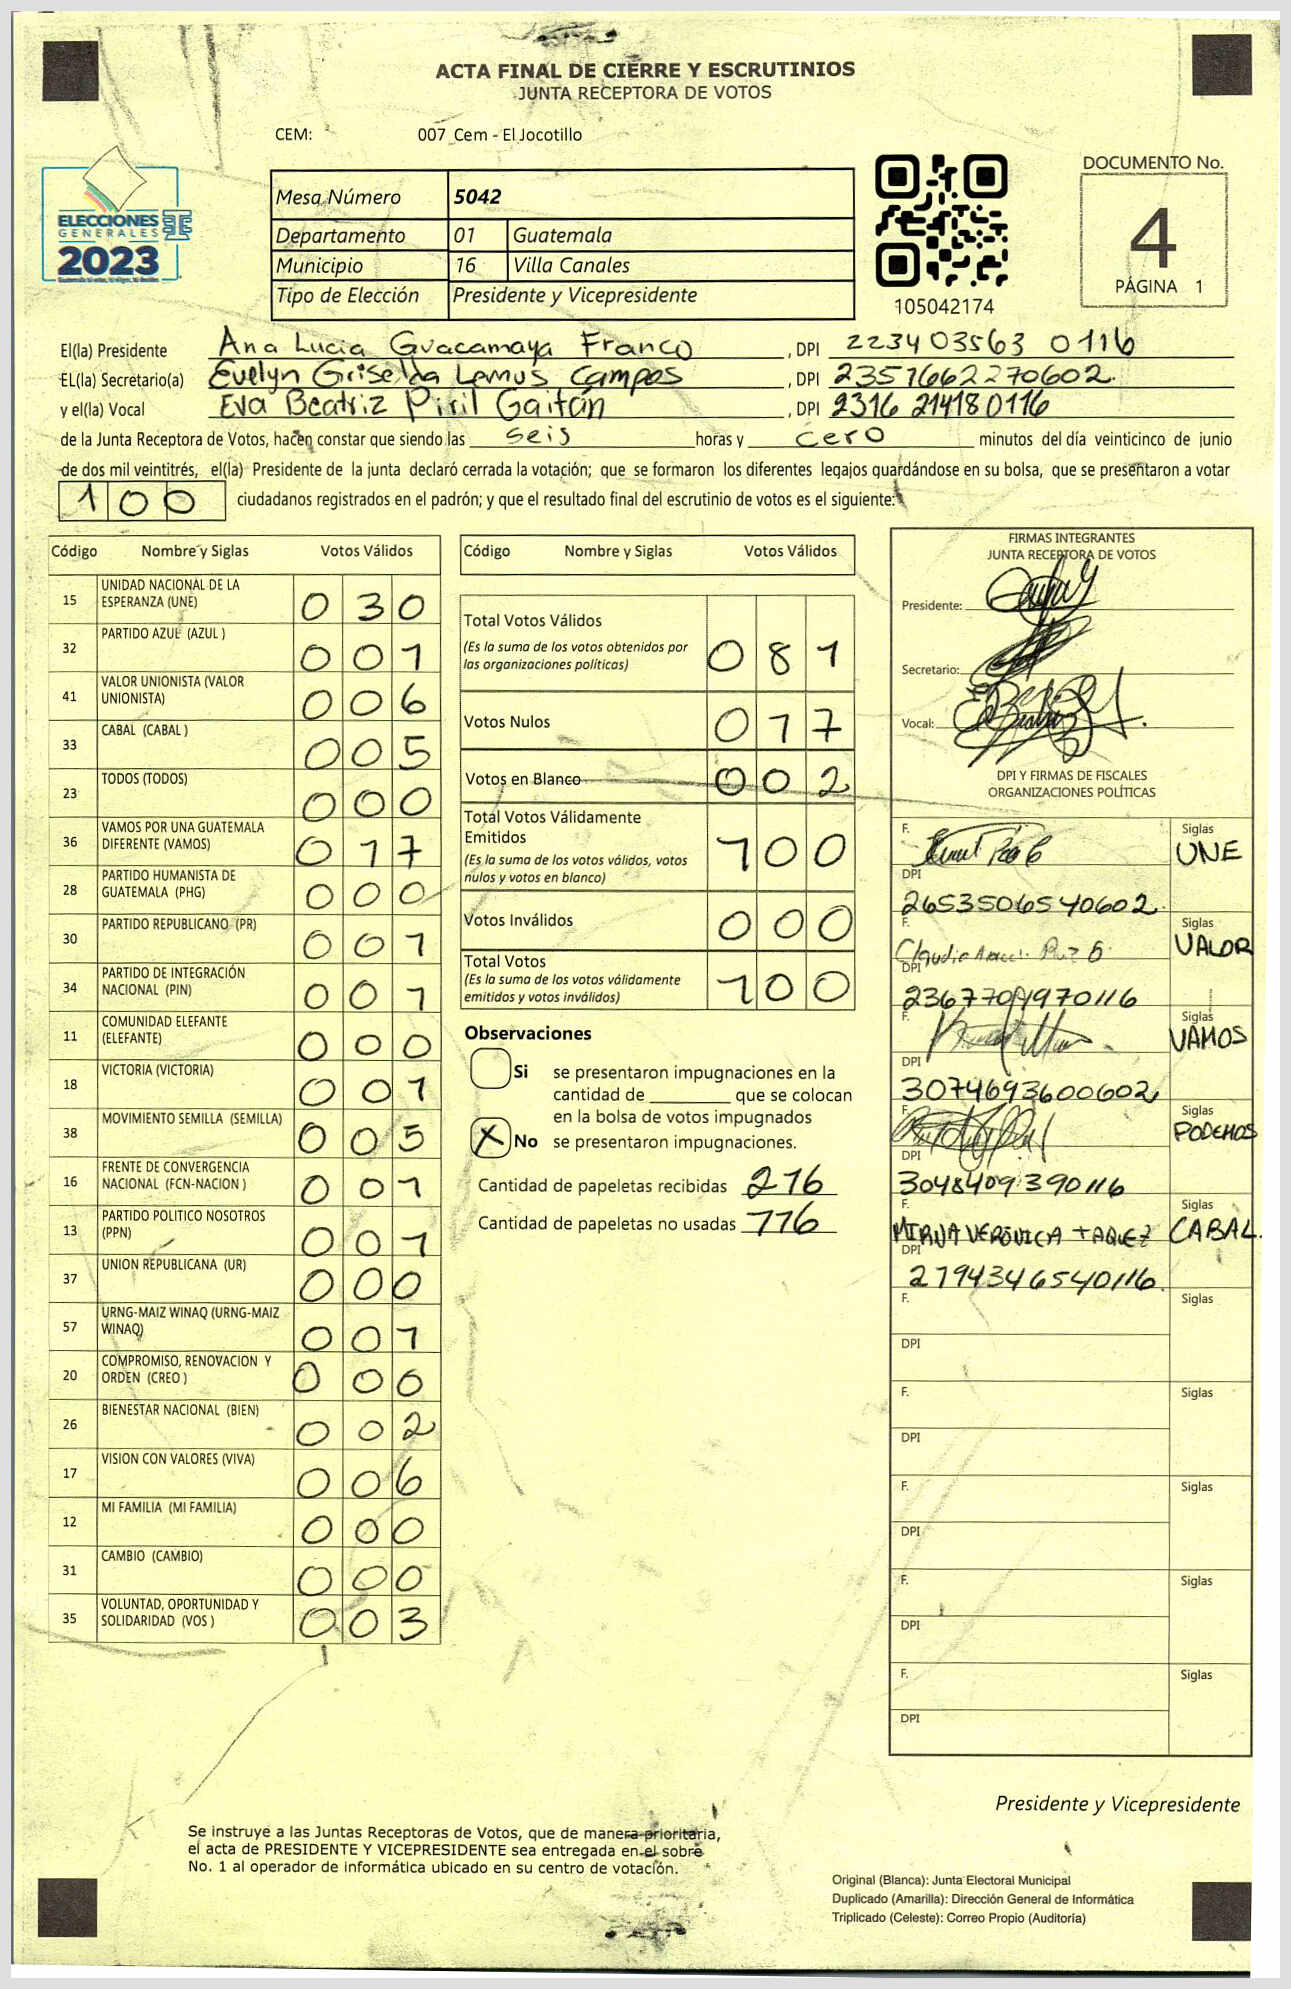 ACTA FINAL DE CIERRE Y ESCRUTINIOS
JUNTA RECEPTORA DE VOTOS
CEM: 007 Cem - El Jocotillo
ELECCIONES
GENERALES
2023
Mesa Número 5042
Departamento 01 Guatemala
Municipio 16 Villa Canales
Tipo de Elección Presidente y Vicepresidente
105042174
DOCUMENTO No.
4
PÁGINA 1
El(la) Presidente Ana Lucia Guacamaya Franco, DPI 223403563 0116
EL(la) Secretario(a) Evelyn Griselda Lemus Campos, DPI 2351662270602
y el(la) Vocal Eva Beatriz Piril Gaitán, DPI 2316 214180116
de la Junta Receptora de Votos, hacen constar que siendo las seis horas y cero minutos del día veinticinco de junio
de dos mil veintitrés, el(la) Presidente de la junta declaró cerrada la votación; que se formaron los diferentes legajos guardándose en su bolsa, que se presentaron a votar
100 ciudadanos registrados en el padrón; y que el resultado final del escrutinio de votos es el siguiente:
Código Nombre y Siglas Votos Válidos
15 UNIDAD NACIONAL DE LA ESPERANZA (UNE) 030
32 PARTIDO AZUL (AZUL ) 001
41 VALOR UNIONISTA (VALOR UNIONISTA) 006
33 CABAL (CABAL ) 005
23 TODOS (TODOS) 000
36 VAMOS POR UNA GUATEMALA DIFERENTE (VAMOS) 017
28 PARTIDO HUMANISTA DE GUATEMALA (PHG) 000
30 PARTIDO REPUBLICANO (PR) 001
34 PARTIDO DE INTEGRACIÓN NACIONAL (PIN) 001
11 COMUNIDAD ELEFANTE (ELEFANTE) 000
18 VICTORIA (VICTORIA) 001
38 MOVIMIENTO SEMILLA (SEMILLA) 005
16 FRENTE DE CONVERGENCIA NACIONAL (FCN-NACION ) 001
13 PARTIDO POLITICO NOSOTROS (PPN) 001
37 UNION REPUBLICANA (UR) 000
57 URNG-MAIZ WINAQ (URNG-MAIZ WINAQ) 001
20 COMPROMISO, RENOVACION Y ORDEN (CREO ) 000
26 BIENESTAR NACIONAL (BIEN) 002
17 VISION CON VALORES (VIVA) 006
12 MI FAMILIA (MI FAMILIA) 000
31 CAMBIO (CAMBIO) 000
35 VOLUNTAD, OPORTUNIDAD Y SOLIDARIDAD (VOS ) 003
Código Nombre y Siglas Votos Válidos
Total Votos Válidos
(Es la suma de los votos obtenidos por las organizaciones políticas) 081
Votos Nulos 017
Votos en Blanco 002
Total Votos Válidamente Emitidos
(Es la suma de los votos válidos, votos nulos y votos en blanco) 100
Votos Inválidos 000
Total Votos
(Es la suma de los votos válidamente emitidos y votos inválidos) 100
Observaciones
Si se presentaron impugnaciones en la
cantidad de ________ que se colocan
en la bolsa de votos impugnados
X No se presentaron impugnaciones.
Cantidad de papeletas recibidas 216
Cantidad de papeletas no usadas 116
FIRMAS INTEGRANTES
JUNTA RECEPTORA DE VOTOS
Presidente:
Secretario:
Vocal:
DPI Y FIRMAS DE FISCALES
ORGANIZACIONES POLÍTICAS
F. Siglas UNE
DPI 2653506540602
F. Claudia Ruiz Siglas VALOR
DPI 2367701970116
F. Siglas VAMOS
DPI 3074693600602
F. Siglas PODEMOS
DPI 3048409390116
F. MIRNA VERONICA TAQUEZ Siglas CABAL
DPI 2794346540116
F. Siglas
DPI
F. Siglas
DPI
F. Siglas
DPI
F. Siglas
DPI
F. Siglas
DPI
Presidente y Vicepresidente
Se instruye a las Juntas Receptoras de Votos, que de manera prioritaria,
el acta de PRESIDENTE Y VICEPRESIDENTE sea entregada en el sobre
No. 1 al operador de informática ubicado en su centro de votación.
Original (Blanca): Junta Electoral Municipal
Duplicado (Amarilla): Dirección General de Informática
Triplicado (Celeste): Correo Propio (Auditoría)